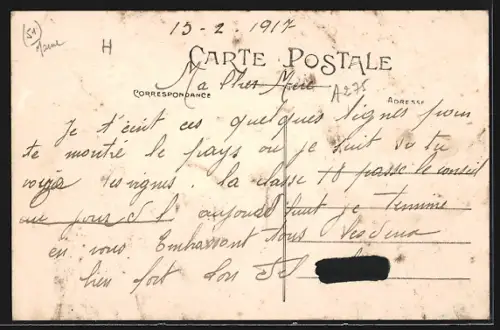 (51)
Marne
H
13-2 1917
CARTE POSTALE
Ma Cher Mère
A275
CORRESPONDANCE
ADRESSE
Je t'écrit ces quelques lignes pour
te montré le pays ou je suit tu
les vignes. la classe 18 passe le conseil
jourd'hui je termine
en vous Embrassant tous les deux
bien fort ton